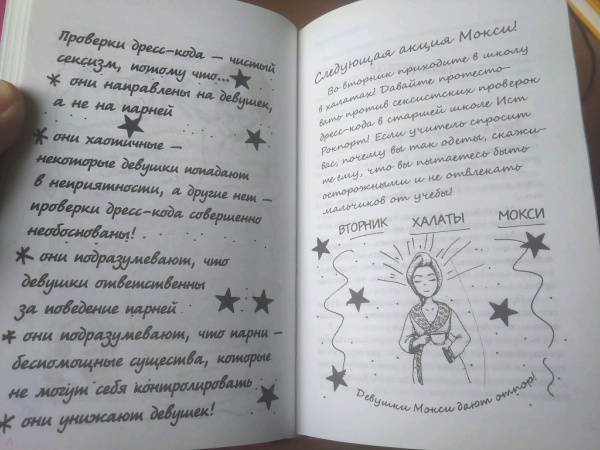 Проверки дресс-кода – чистый
сексизм, потому что...
* они направлены на девушек,
а не на парней
* они хаотичные –
некоторые девушки попадают
в неприятности, а другие нет –
проверки дресс-кода совершенно
необоснованы!
* они подразумевают, что
девушки ответственны
за поведение парней
* они подразумевают, что парни –
беспомощные существа, которые
не могут себя контролировать
* они унижают девушек!
Следующая акция Мокси!
Во вторник приходите в школу
в халатах! Давайте протесто-
вать против сексистских проверок
дресс-кода в старшей школе Ист
Рокпорт! Если учитель спросит
вас, почему вы так одеты, скажи-
те ему, что вы пытаетесь быть
осторожными и не отвлекать
мальчиков от учебы!
ВТОРНИК ХАЛАТЫ МОКСИ
Девушки Мокси дают отпор!